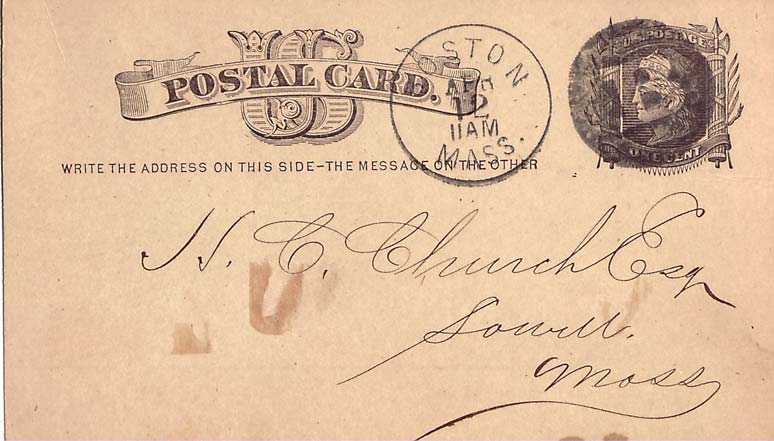 US
POSTAL CARD.
U.S. POSTAGE
ONE CENT
STON
12
11AM
MASS.
WRITE THE ADDRESS ON THIS SIDE–THE MESSAGE ON THE OTHER
H. C. Church Esq
Lowell.
Mass